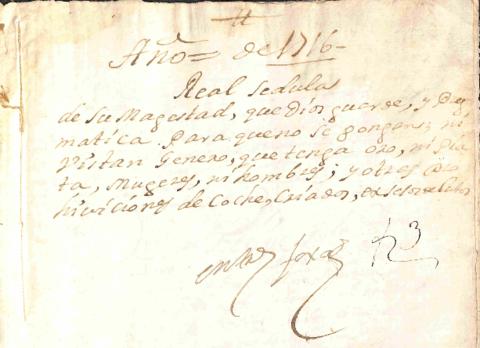 Año de 1716
Real sedula
de Su Magestad, que Dios guarde, y Prg
matica Para que no se pongan, ni
Vistan Genero, que tenga oro, ni pla
ta, Mugeres, ni hombres; y otras pro
hiviciones de Coches, Criados,